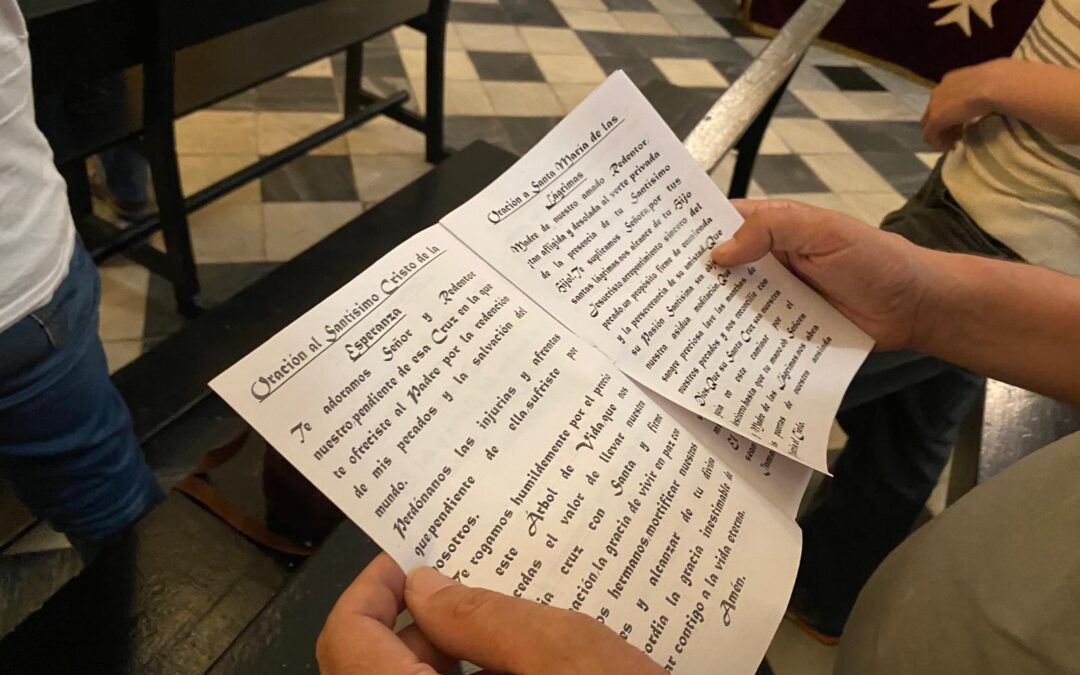 Oración al Santísimo Cristo de la
Esperanza
Te adoramos Señor y Redentor
nuestro pendiente de esa Cruz en la que
te ofreciste al Padre por la redención
de mis pecados y la salvación del
mundo.
Perdónanos las injurias y afrentas
que pendiente de ella,sufriste por
nosotros.
Te rogamos humildemente por el precio
este Árbol de Vida,que nos
cedas el valor de llevar nuestra
cruz con Santa y firme
ación,la gracia de vivir en paz con
os hermanos,mortificar nuestras
y alcanzar de tu divina
ordia la gracia inestimable de
ar contigo a la vida eterna.
Amén.
Oración a Santa María de las
Lágrimas
Madre de nuestro amado Redentor,
¡tan afligida y desolada al verte privada
de la presencia de tu Santísimo
Hijo!:Te suplicamos Señora,por tus
santas lágrimas,nos alcance de tu Hijo
Jesucristo,arrepentimiento sincero del
pecado,un propósito firme de enmienda
y la perseverancia de su amistad.Que
su Pasión Santísima sea objeto de
nuestra asidua meditación.Que su
sangre preciosa lave las manchas de
nuestros pecados y nos reconcilie con
Dios.Que su Santa Cruz sea nuestra
guía en este caminar por el
destierro,hasta que tu mano,oh Señora
y Madre de las Lágrimas,nos abra
puertas de nuestra ansiada